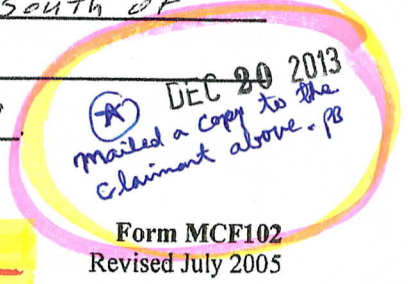 South of
DEC 20 2013
A mailed a copy to the
Claimant above. PB
Form MCF102
Revised July 2005